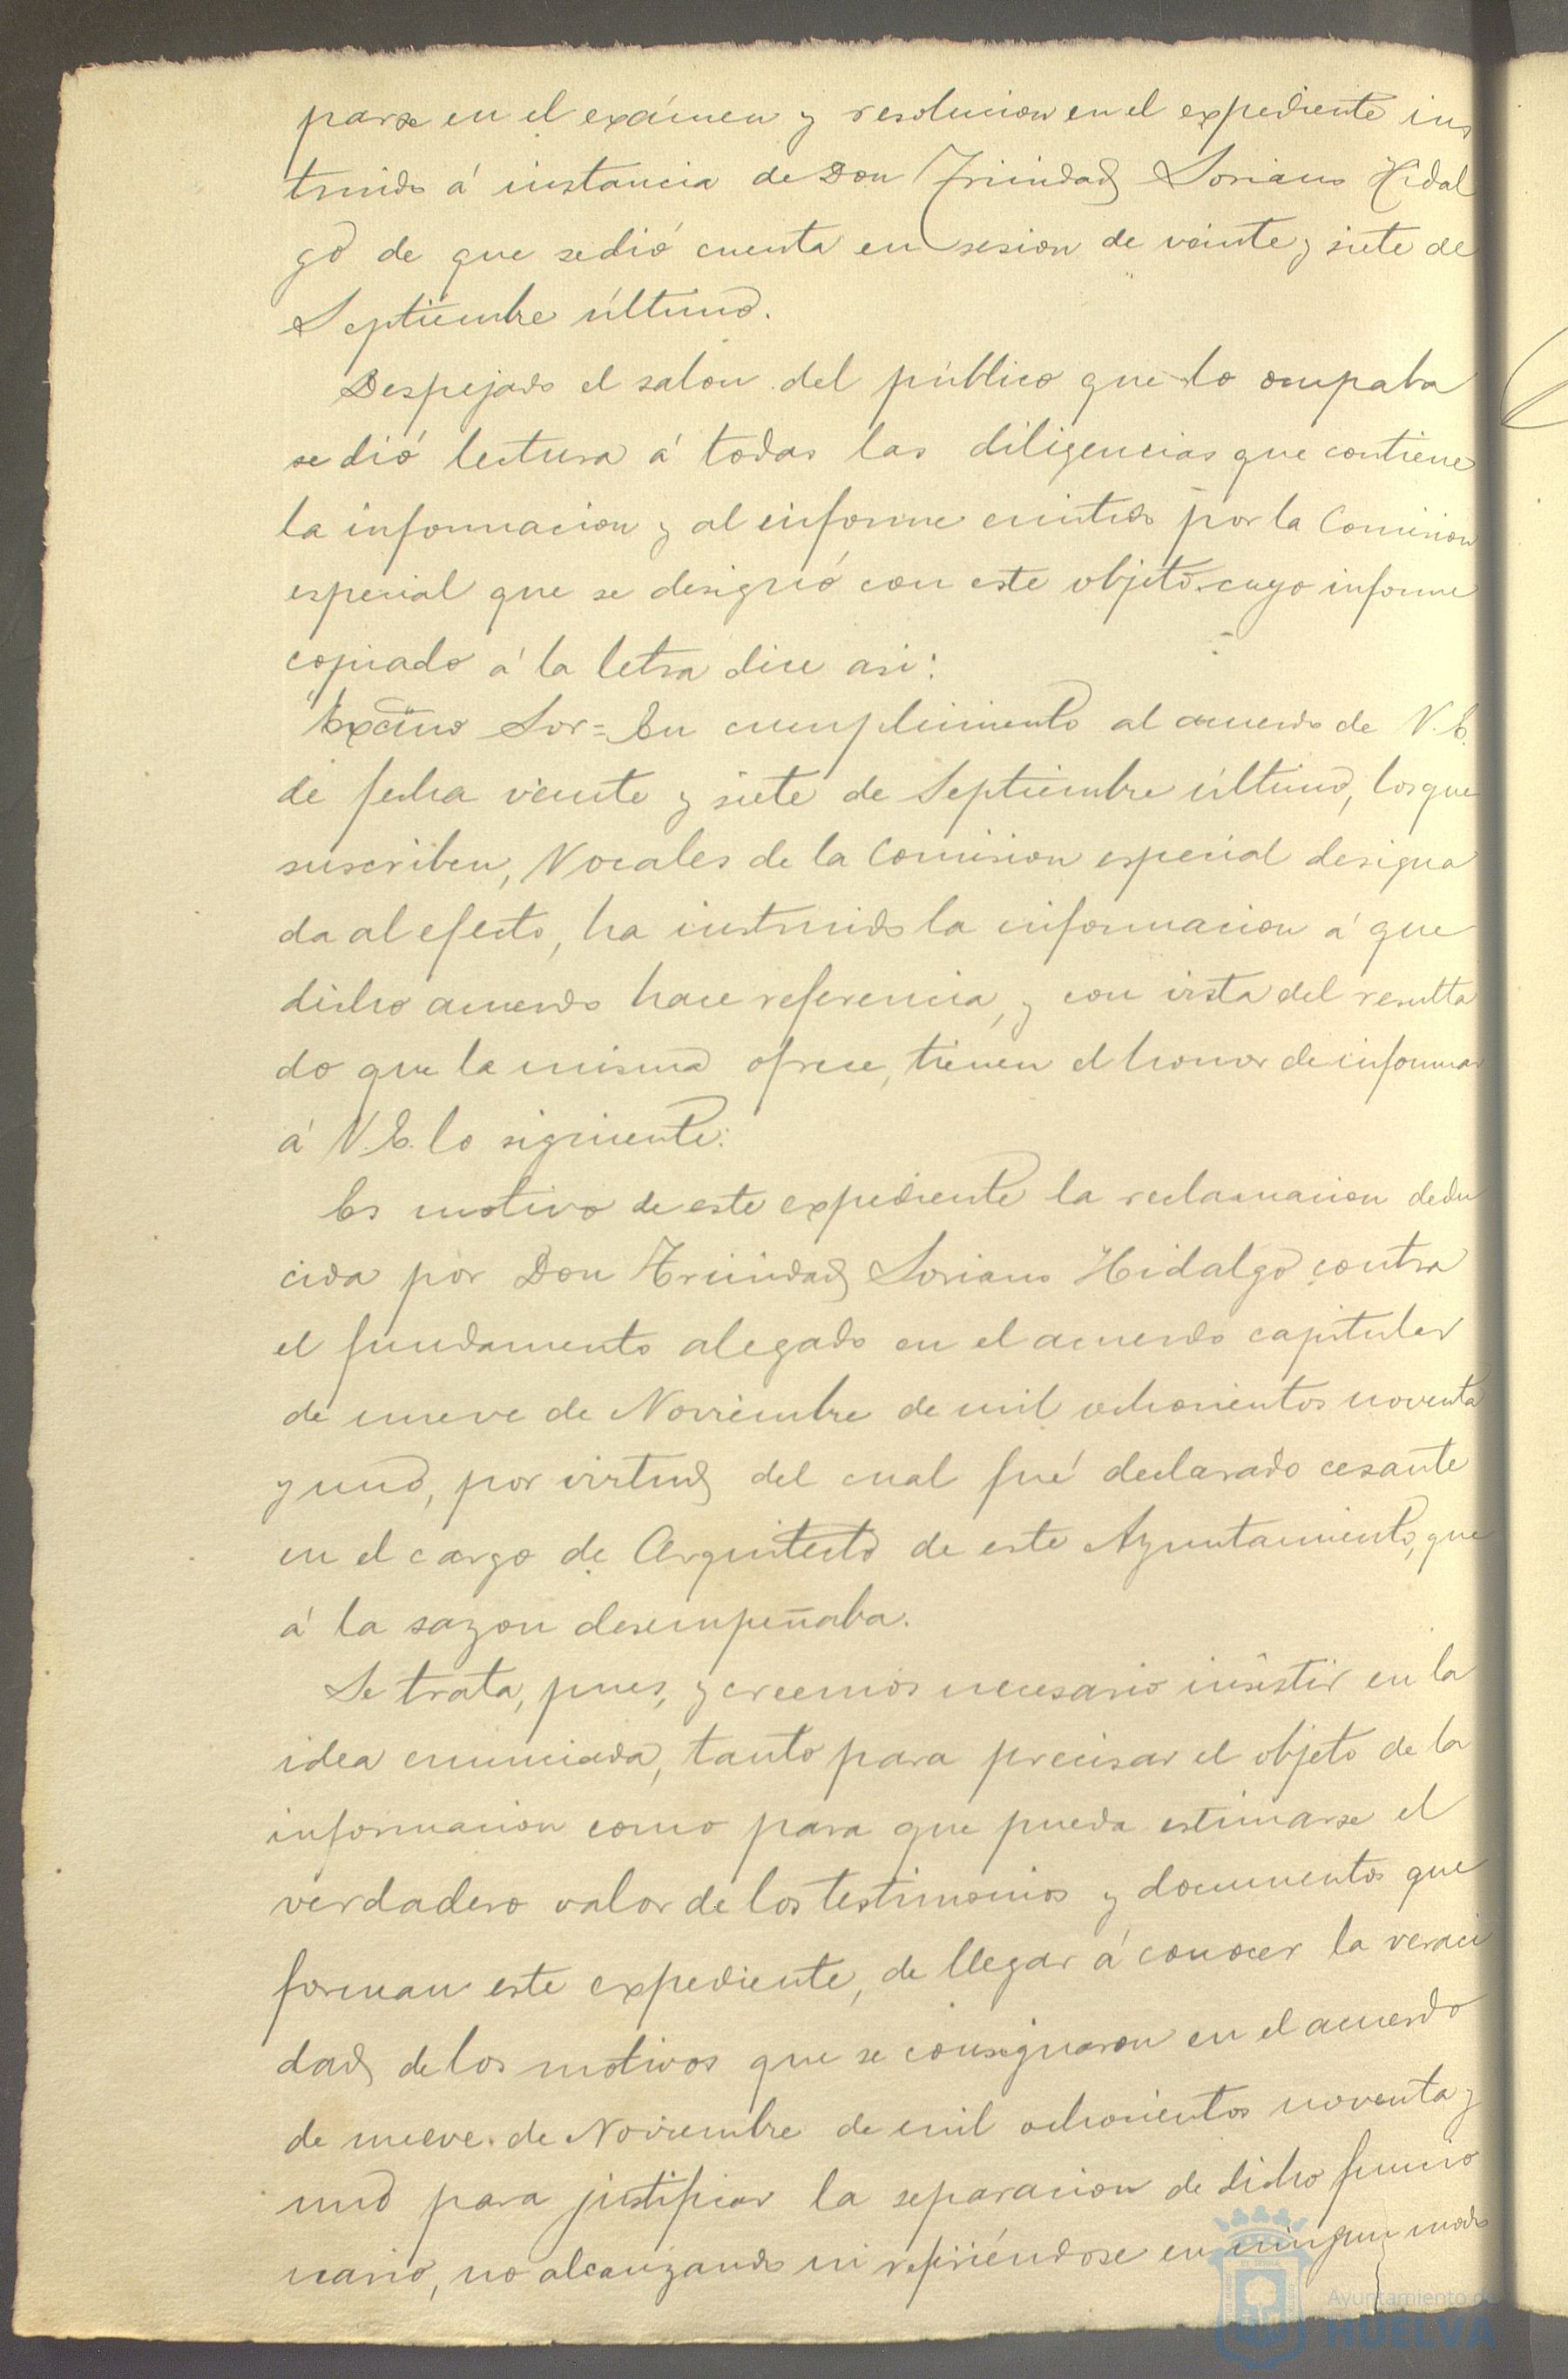 parse en el exámen y resolucion en el expediente ins
truido á instancia de Don Trinidad Soriano Hidal
go de que se dió cuenta en sesion de veinte y siete de
Septiembre último.
Despejado el salon del público que lo ocupaba
se dió lectura á todas las diligencias que contiene
la informacion y al informe emitido por la Comision
especial que se designó con este objeto cuyo informe
copiado á la letra dice asi:
"Excmo Sor = En cumplimiento al acuerdo de V. E.
de fecha veinte y siete de Septiembre último, los que
suscriben, Vocales de la Comision especial designa
da al efecto, ha instruido la informacion á que
dicho acuerdo hace referencia, y con vista del resulta
do que la misma ofrece, tienen el honor de informar
á V. E. lo siguiente:
Es motivo de este expediente la reclamacion dedu
cida por Don Trinidad Soriano Hidalgo contra
el fundamento alegado en el acuerdo capitular
de nueve de Noviembre de mil ochocientos noventa
y uno, por virtud del cual fué declarado cesante
en el cargo de Arquitecto de este Ayuntamiento, que
á la sazon desempeñaba.
Se trata, pues, y creemos necesario insistir en la
idea enunciada, tanto para precisar el objeto de la
informacion como para que pueda estimarse el
verdadero valor de los testimonios y documentos que
forman este expediente, de llegar á conocer la veraci
dad de los motivos que se consignaron en el acuerdo
de nueve de Noviembre de mil ochocientos noventa y
uno para justificar la separacion de dicho funcio
nario, no alcanzando ni refiriéndose en ningun modo
Ayuntamiento de
HUELVA